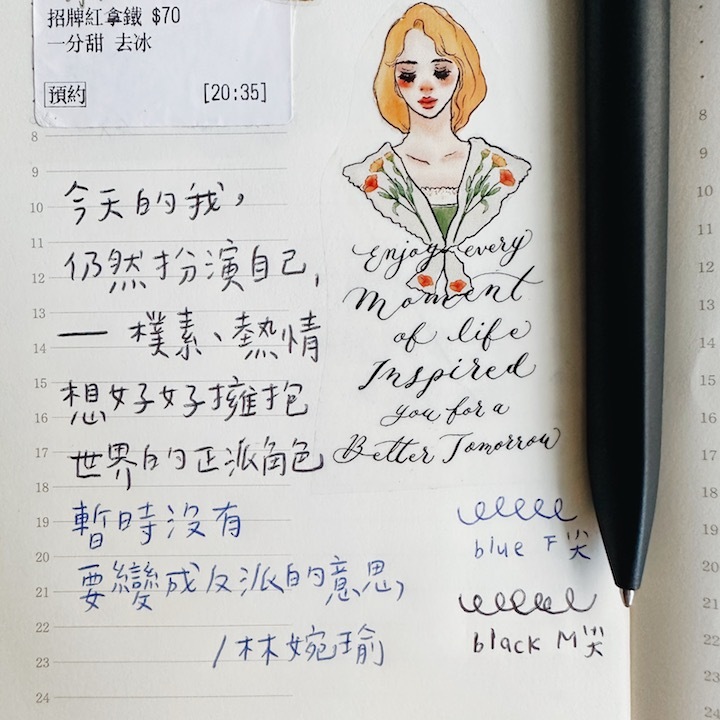 招牌紅拿鐵 $70
一分甜 去冰
預約 [20:35]
8
9
10
11
12
13
14
15
16
17
18
19
20
21
22
23
24
今天的我，
仍然扮演自己，
— 樸素、熱情
想好好擁抱
世界的正派角色
暫時沒有
要變成反派的意思，
/林婉瑜
Enjoy every
Moment
of life
Inspired
you for a
Better Tomorrow
blue F尖
black M尖
8
9
10
11
12
13
14
15
16
17
18
19
20
21
22
23
24